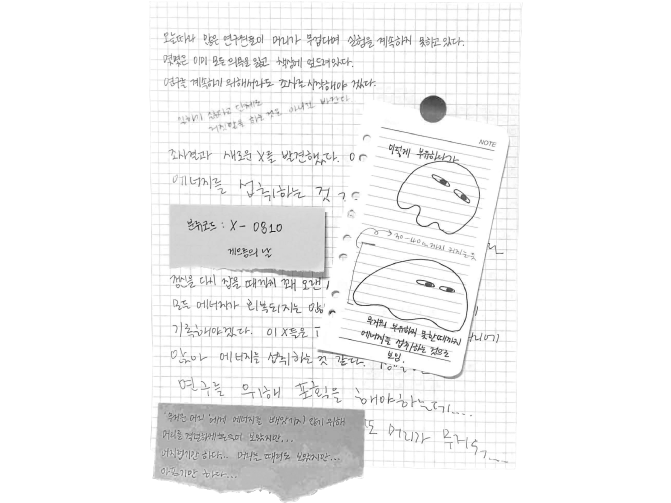 오늘따라 많은 연구원들이 머리가 무겁다며 실험을 계속하지 못하고 있다.
몇몇은 이미 모든 의욕을 잃고 책상에 엎드려있다.
연구를 계속하기 위해서라도 조사를 시작해야 겠다.
조사결과 새로운 X를 발견했다.
에너지를 섭취하는 것
분류코드 : X - 0810
게으름의 날
정신을 다시 잡을 때까지 꽤 오랜
모든 에너지가 회복되지는 않
기록해야겠다. 이 X들은
앉아 에너지를 섭취하는 것 같다.
연구를 위해 포획을 해야하는데....
도 머리가 무거워....
NOTE
이렇게 부유하다가
30-40cm까지 커지는듯
무거워 부유하지 못할때까지
에너지를 섭취하는 것으로
보임.
무거운 머리
에너지를 뱉어내지 않기 위해
머리를
보았지만...
어지럽기만 하다... 머리를 때려도 보았지만...
아프기만 하다...